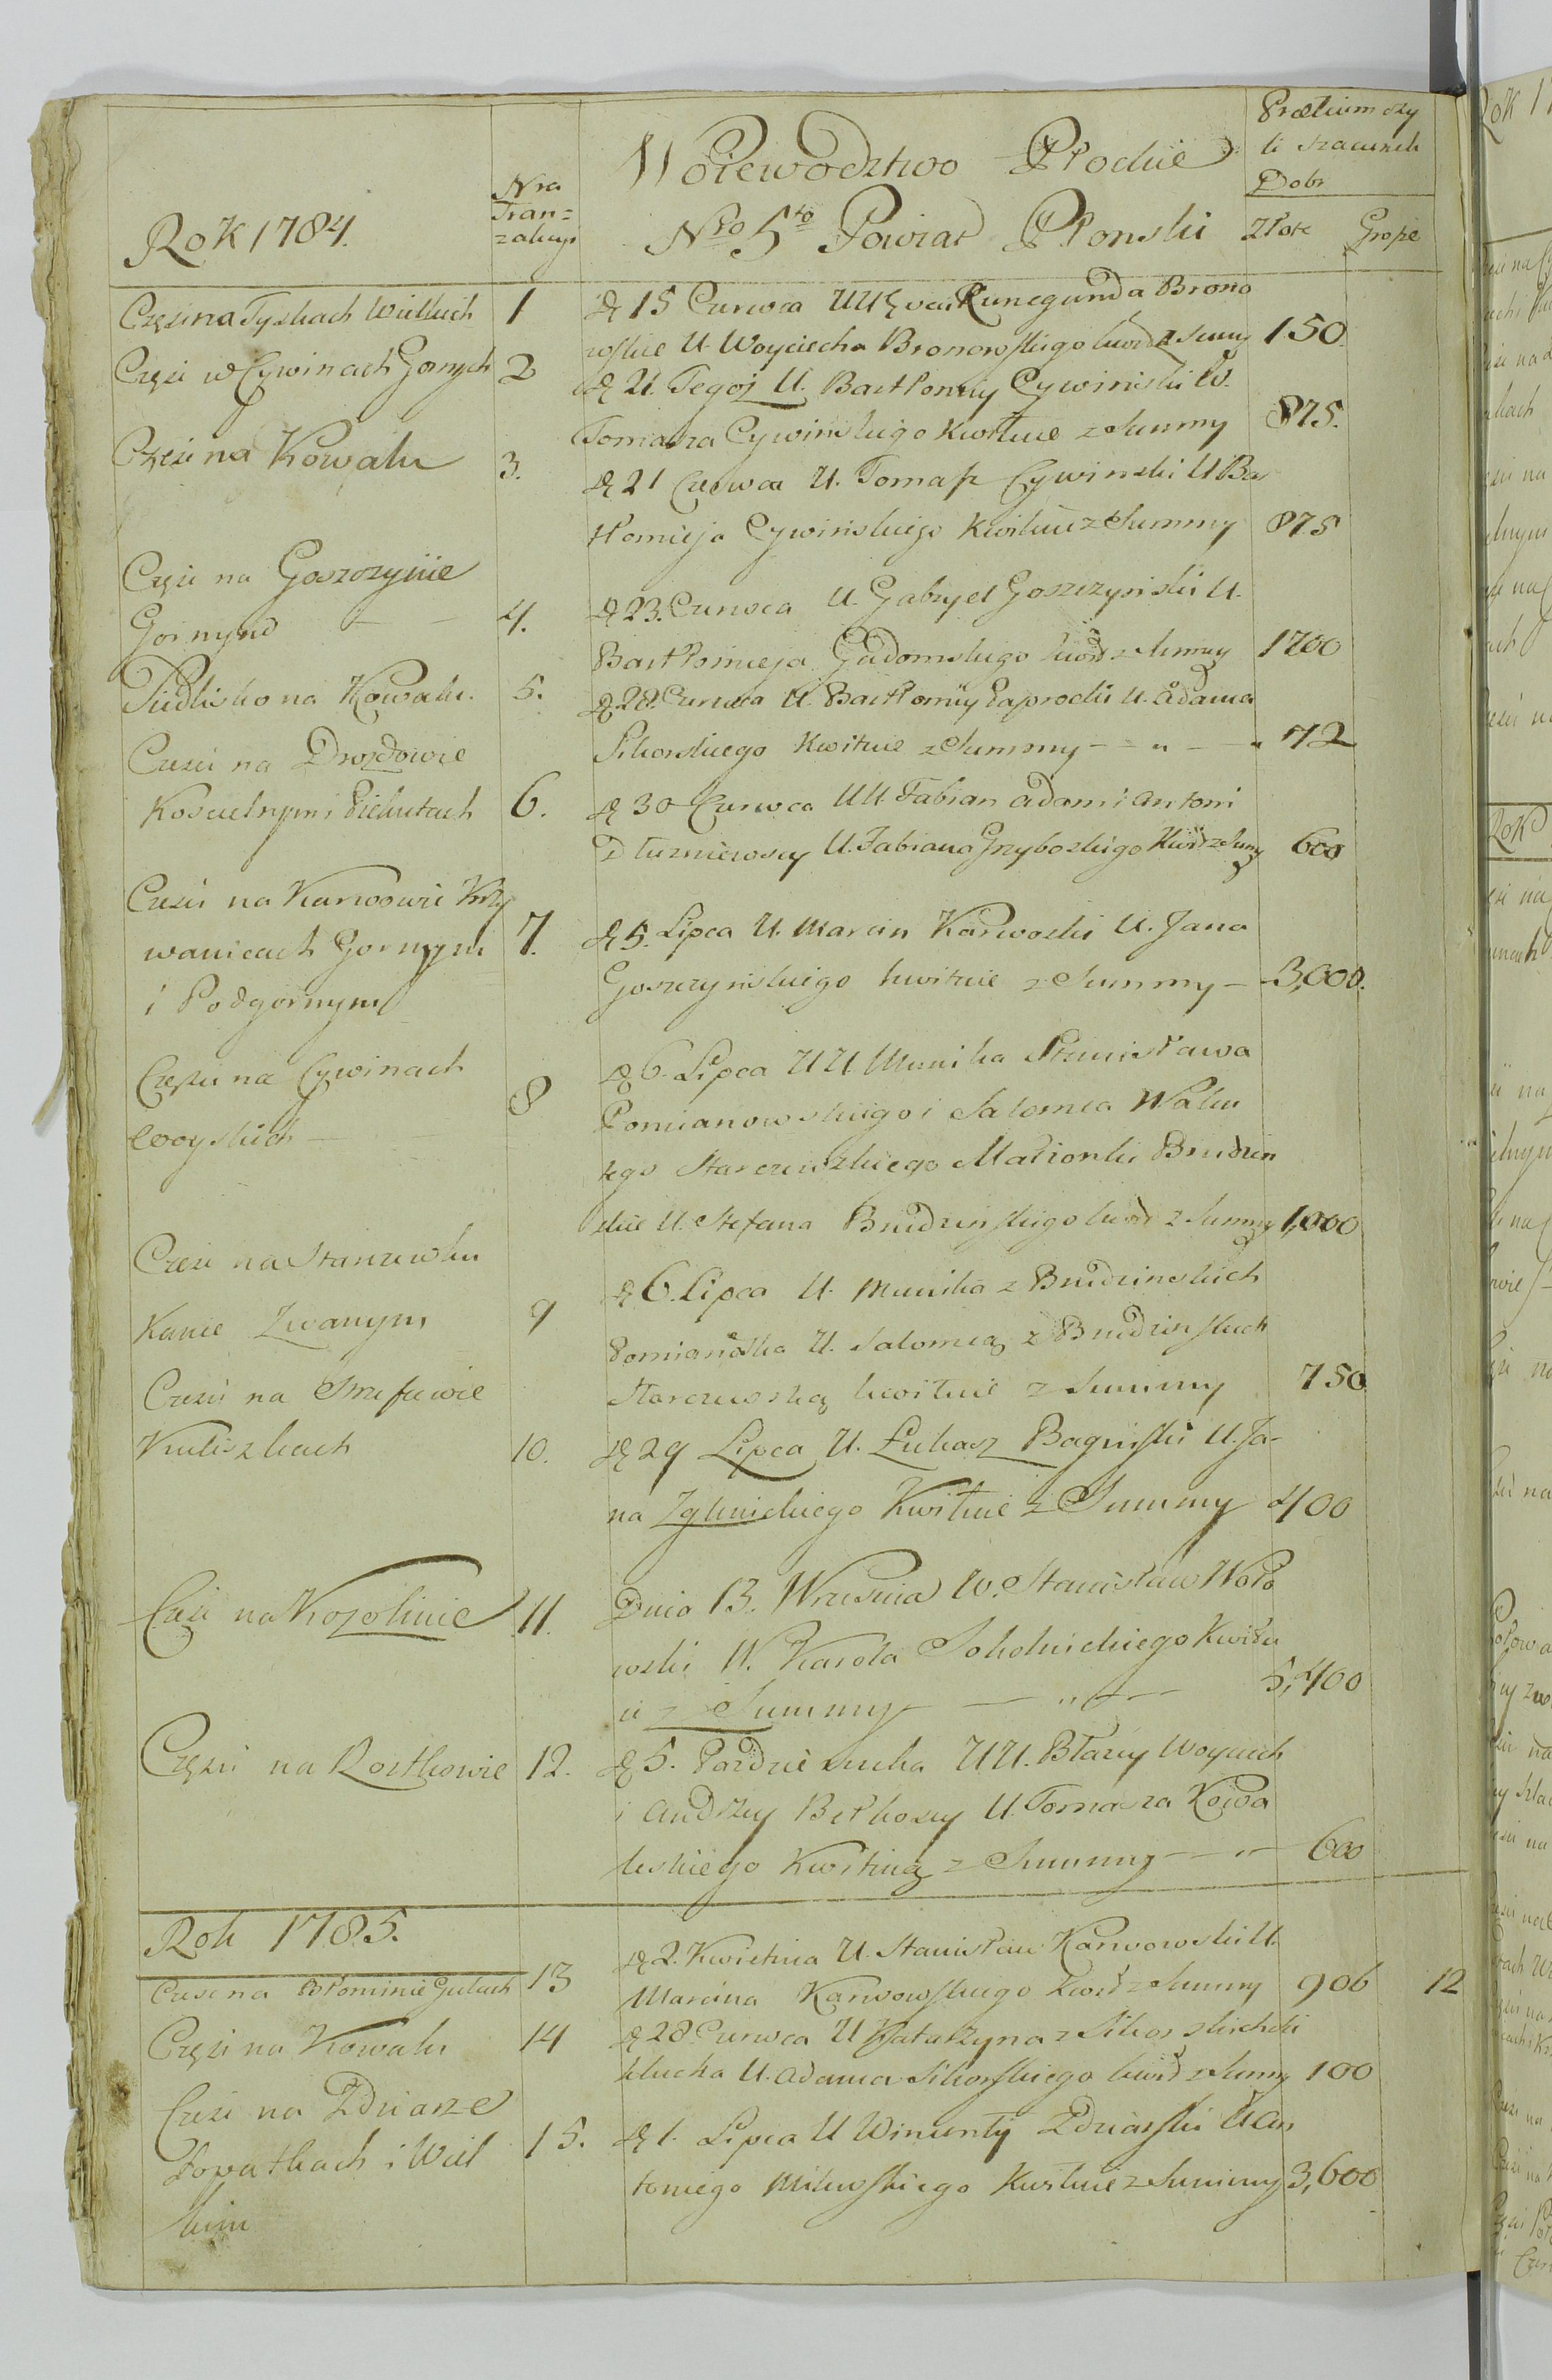 Rok 1784.
Nra
Tran=
zakcyi
Wojewodztwo Płockie
Nro 5to Powiat Płonski
Prætium czy
li szacunek
Dobr
Złote Grosze
Części na Tyskach Wielkich 1
D 15 Czerwca UU Ewa i Kunegunda Brono
wskie U. Woyciecha Bronowskiego kwit z Summy 150.
Części w Cywinach Gornych 2
D 21. Tegoż U. Bartłomiey Cywinski U.
Tomasza Cywinskiego kwituie z Summy 875.
Części na Kowalu 3.
D 21 Czerwca U. Tomasz Cywinski U Bar
tłomieja Cywinskiego kwituie z Summy 875
Części na Goszczynie
Gornym 4.
D 23. Czerwca U. Gabryel Goszczynski U.
Bartłomieja Gadomskiego kwit z Summy 1700
Siedlisko na Kowalu. 5.
D 28. Czerwca U. Bartłomiey Paprocki U. Adama
Sikorskiego kwituie z Summy 72
Części na Drozdowie
Kościelnym i Piekutach 6.
D 30 Czerwca UU Fabian Adam i Antoni
Dłuzniewscy U. Fabiana Grzybowskiego kwit z Sumy 600
Części na Karwowie Krzy
wanicach Gornym
i Podgornym 7.
D 5. Lipca U. Marcin Karwoski U. Jana
Goszczynskiego kwituie z Summy 3,000.
Części na Cywinach
Woyskich 8
D 6. Lipca UU Munika Stanisława
Pomianowskiego i Salomea Walen
tego Starczewskiego Małżonki Brudzin
skie U. Stefana Brudzinskiego kwit z Summy 1,000
Części na Starczewku
Kanie Zwanym 9
D 6. Lipca U. Munika z Brudzinskich
Pomianoska U. Salomeą z Brudzinskich
Starczewską kwituie z Summy 750
Części na Strzesiewie
Kuliszkach 10.
D 29 Lipca U. Łukasz Baginski U. Ja-
na Zglinickiego Kwituie z Summy 400
Części na Kozolinie 11.
Dnia 13. Wrzesnia W. Stanisław Woło
wski W. Karola Sokolnickiego Kwitu
ie z Summy 5,400
Części na Rostkowie 12.
D 5. Pazdziernika UU. Błazey Woyciech
i Andrzey Bełkoscy U. Tomasza Kowa
leskiego Kwituią z Summy 600
Rok 1785.
Części na Wołominie Gulach 13
D 2. Kwietnia U. Stanisław Karwowski U.
Marcina Karwowskiego kwit z Summy 906 12
Części na Kowalu 14
D 28 Czerwca U Katarzyna z Sikorskich
U. Adama Sikorskiego kwit z Summy 100
Części na Zdziarze
Łopatkach i Wiel
kim 15.
D 1. Lipca U Wincenty Zdziarski U An
toniego Milewskiego Kwituie z Summy 3,600